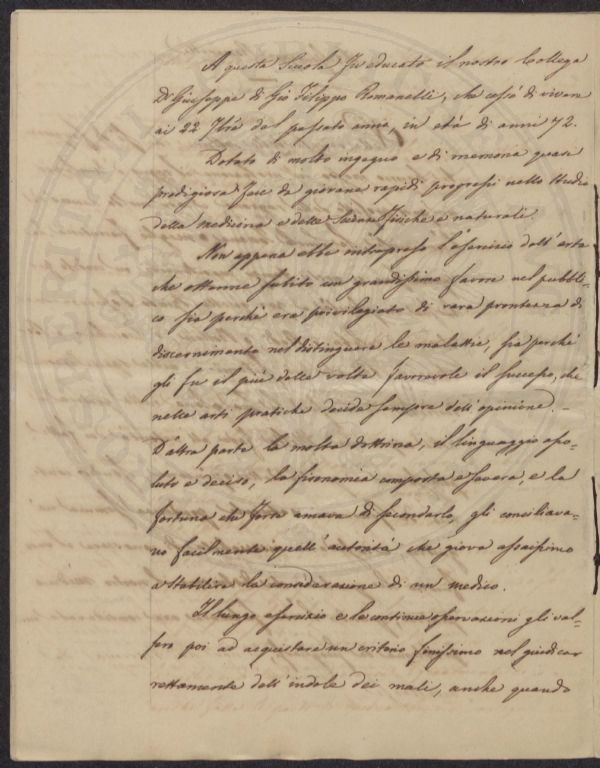 A questa Scuola fu educato il nostro Collega
Dr Giuseppe di Gio Filippo Romanelli, che cessò di vivere
ai 22 7bre del passato anno, in età di anni 72.
Dotato di molto ingegno e di memoria quasi
prodigiosa fece da giovane rapidi progressi nello studio
della medicina e delle Scienze fisiche e naturali.
Non appena ebbe intrapreso l'esercizio dell'arte
che ottenne subito un grandissimo favore nel pubbli=
co sia perché era privilegiato di rara prontezza di
discernimento nel distinguere le malattie, sia perché
gli fu il più delle volte favorevole il successo, che
nelle arti pratiche decide sempre dell'opinione. –
D'altra parte la molta dottrina, il linguaggio aso=
luto e deciso, la fisonomia composta e severa, e la
fortuna che forte amava di secondarlo, gli conciliava=
no facilmente quell'autorità che giova assaissimo
a stabilire la considerazione di un medico.
Il lungo esercizio e le continue osservazioni gli val=
sero poi ad acquistare un criterio finissimo nel giudicar
rettamente dell'indole dei mali, anche quando